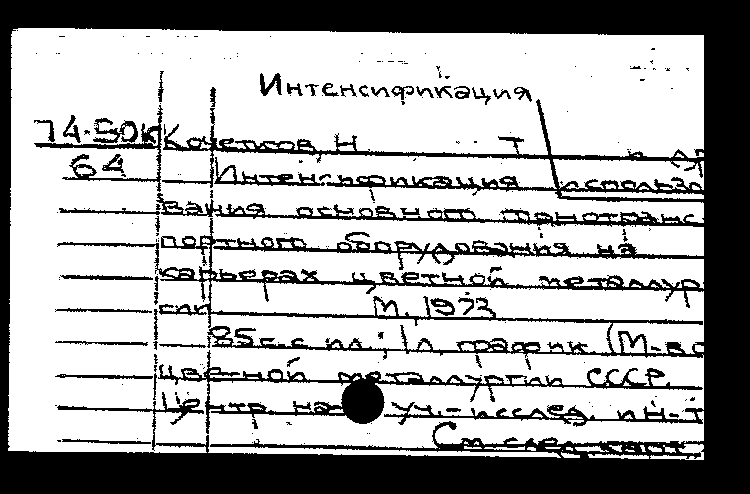 Интенсификация
74-50К Кочетков, Н Т и др
64 Интенсификация использо
вания основного транс
портного оборудования на
карьерах цветной металлур
гии М., 1973
85с. с ил.; 1л. график (М-во
цветной металлургии СССР.
Центр. на уч.-исслед. ин-т
См след карт